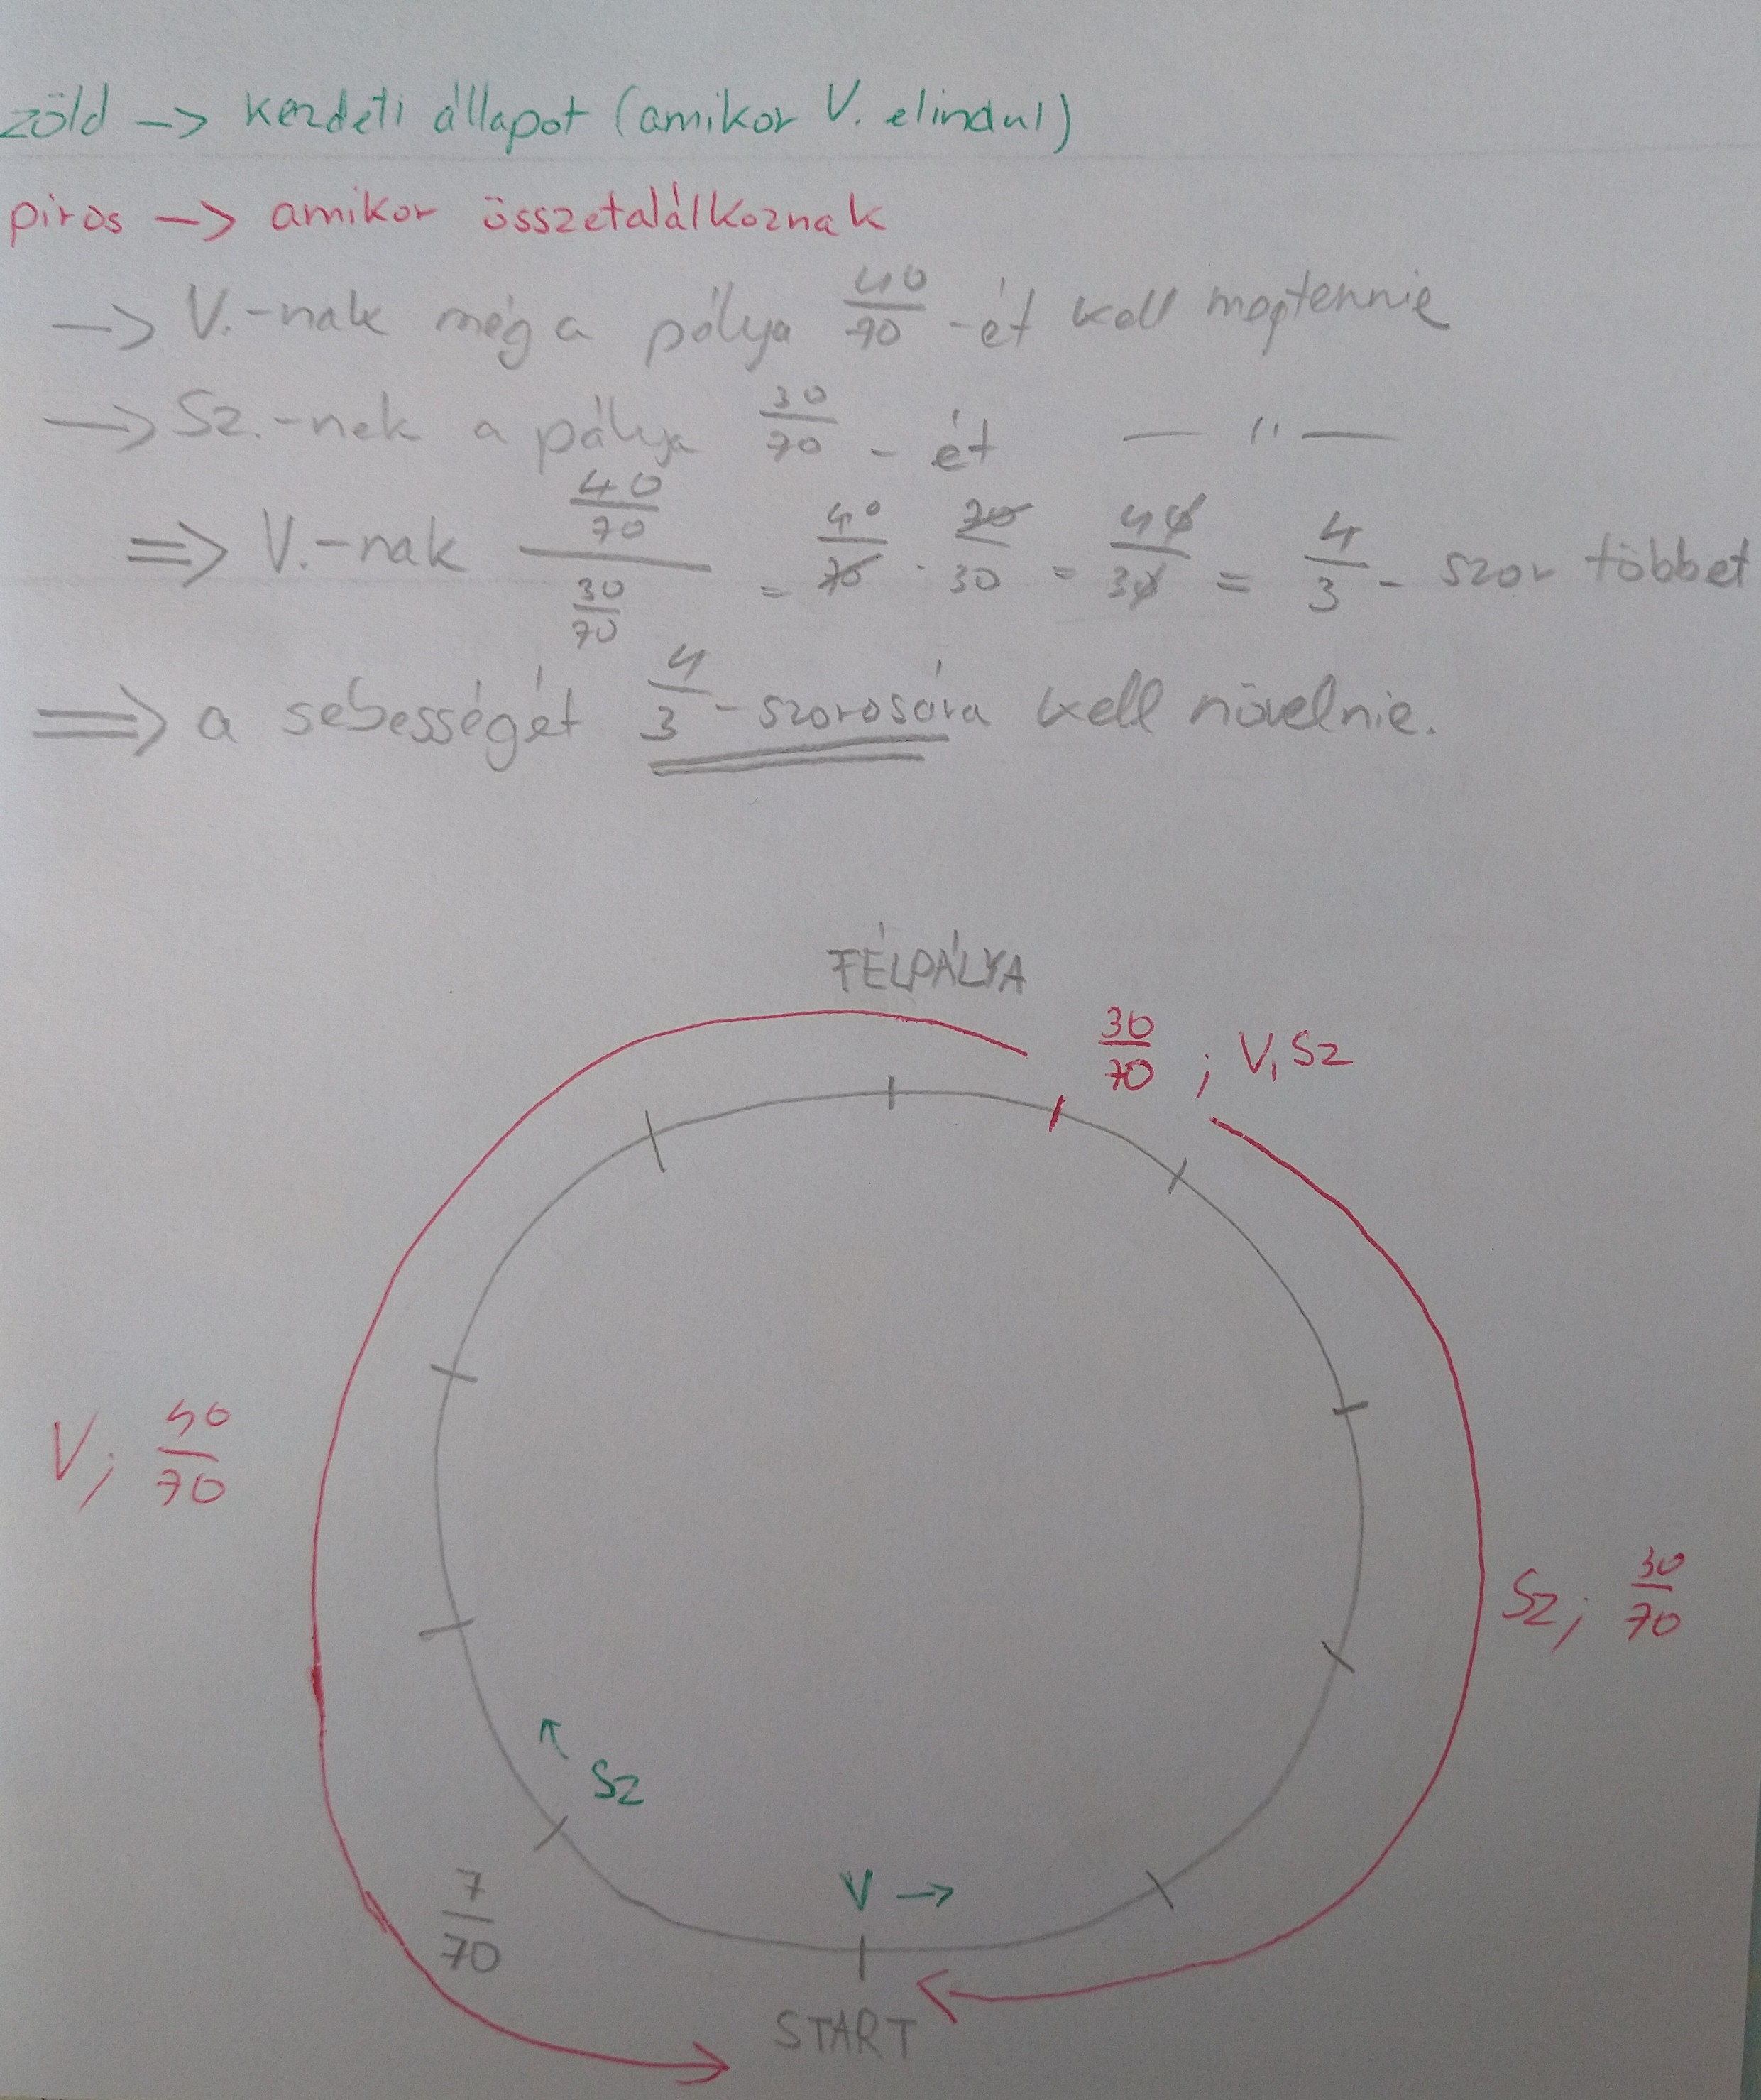 zöld -> kezdeti állapot (amikor V. elindul)
piros -> amikor összetalálkoznak
-> V.-nak még a pálya 40/70 -ét kell megtennie
-> Sz.-nek a pálya 30/70 - ét — " —
=> V.-nak (40/70)/(30/70) = 40/70 · 70/30 = 40/30 = 4/3 - szor többet
=> a sebességét 4/3 - szorosára kell növelnie.
FÉLPÁLYA
30/70 ; V, Sz
V; 40/70
Sz; 30/70
Sz
7/70
V ->
START